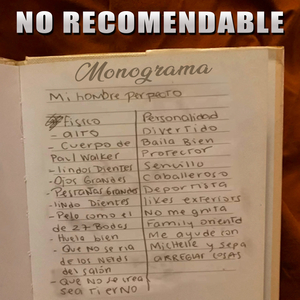 NO RECOMENDABLE
Monograma
Mi hombre perfecto
Fisico
- alto
- Cuerpo de
Paul Walker
- lindos Dientes
- Ojos Grandes
- Pestañas Grandes
- lindo Dientes
- Pelo como el
de 27 Bodas
- Huela bien
- Que No se ria
de los Nerds
del salón
- Que no se crea
sea tierno
Personalidad
Divertido
Baila Bien
Protector
Sencillo
Caballeroso
Deportista
likes exteriors
No me grita
Family oriented
Me ayude con
Michelle y sepa
ARREGLAR COSAS